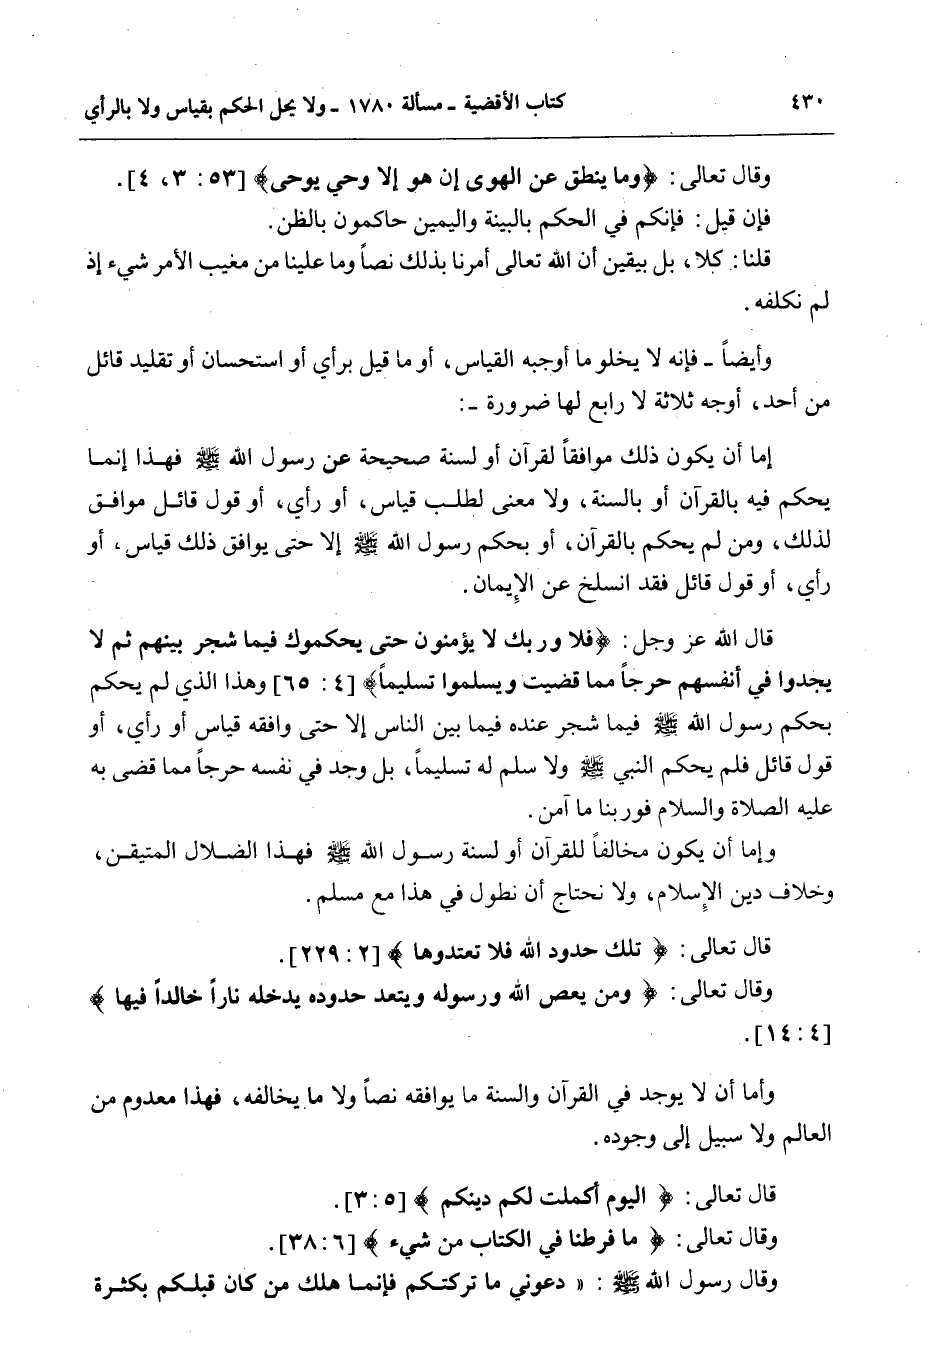 ٤٣٠ كتاب الأقضية ـ مسألة ١٧٨٠ ـ ولا يحل الحكم بقياس ولا بالرأي
وقال تعالى: ﴿وما ينطق عن الهوى إن هو إلا وحي يوحى﴾ [٥٣: ٣، ٤].
فإن قيل: فإنكم في الحكم بالبينة واليمين حاكمون بالظن.
قلنا: كلا، بل بيقين أن الله تعالى أمرنا بذلك نصاً وما علينا من مغيب الأمر شيء إذ
لم نكلفه.
وأيضاً ـ فإنه لا يخلو ما أوجبه القياس، أو ما قيل برأي أو استحسان أو تقليد قائل
من أحد، أوجه ثلاثة لا رابع لها ضرورة ـ:
إما أن يكون ذلك موافقاً لقرآن أو لسنة صحيحة عن رسول الله ﷺ فهذا إنما
يحكم فيه بالقرآن أو بالسنة، ولا معنى لطلب قياس، أو رأي، أو قول قائل موافق
لذلك، ومن لم يحكم بالقرآن، أو بحكم رسول الله ﷺ إلا حتى يوافق ذلك قياس، أو
رأي، أو قول قائل فقد انسلخ عن الإيمان.
قال الله عز وجل: ﴿فلا وربك لا يؤمنون حتى يحكموك فيما شجر بينهم ثم لا
يجدوا في أنفسهم حرجاً مما قضيت ويسلموا تسليماً﴾ [٤: ٦٥] وهذا الذي لم يحكم
بحكم رسول الله ﷺ فيما شجر عنده فيما بين الناس إلا حتى وافقه قياس أو رأي، أو
قول قائل فلم يحكم النبي ﷺ ولا سلم له تسليماً، بل وجد في نفسه حرجاً مما قضى به
عليه الصلاة والسلام فوربنا ما آمن.
وإما أن يكون مخالفاً للقرآن أو لسنة رسول الله ﷺ فهذا الضلال المتيقن،
وخلاف دين الإسلام، ولا نحتاج أن نطول في هذا مع مسلم.
قال تعالى: ﴿ تلك حدود الله فلا تعتدوها ﴾ [٢: ٢٢٩].
وقال تعالى: ﴿ ومن يعص الله ورسوله ويتعد حدوده يدخله ناراً خالداً فيها ﴾
[٤: ١٤].
وأما أن لا يوجد في القرآن والسنة ما يوافقه نصاً ولا ما يخالفه، فهذا معدوم من
العالم ولا سبيل إلى وجوده.
قال تعالى: ﴿ اليوم أكملت لكم دينكم ﴾ [٥: ٣].
وقال تعالى: ﴿ ما فرطنا في الكتاب من شيء ﴾ [٦: ٣٨].
وقال رسول الله ﷺ: « دعوني ما تركتكم فإنما هلك من كان قبلكم بكثرة